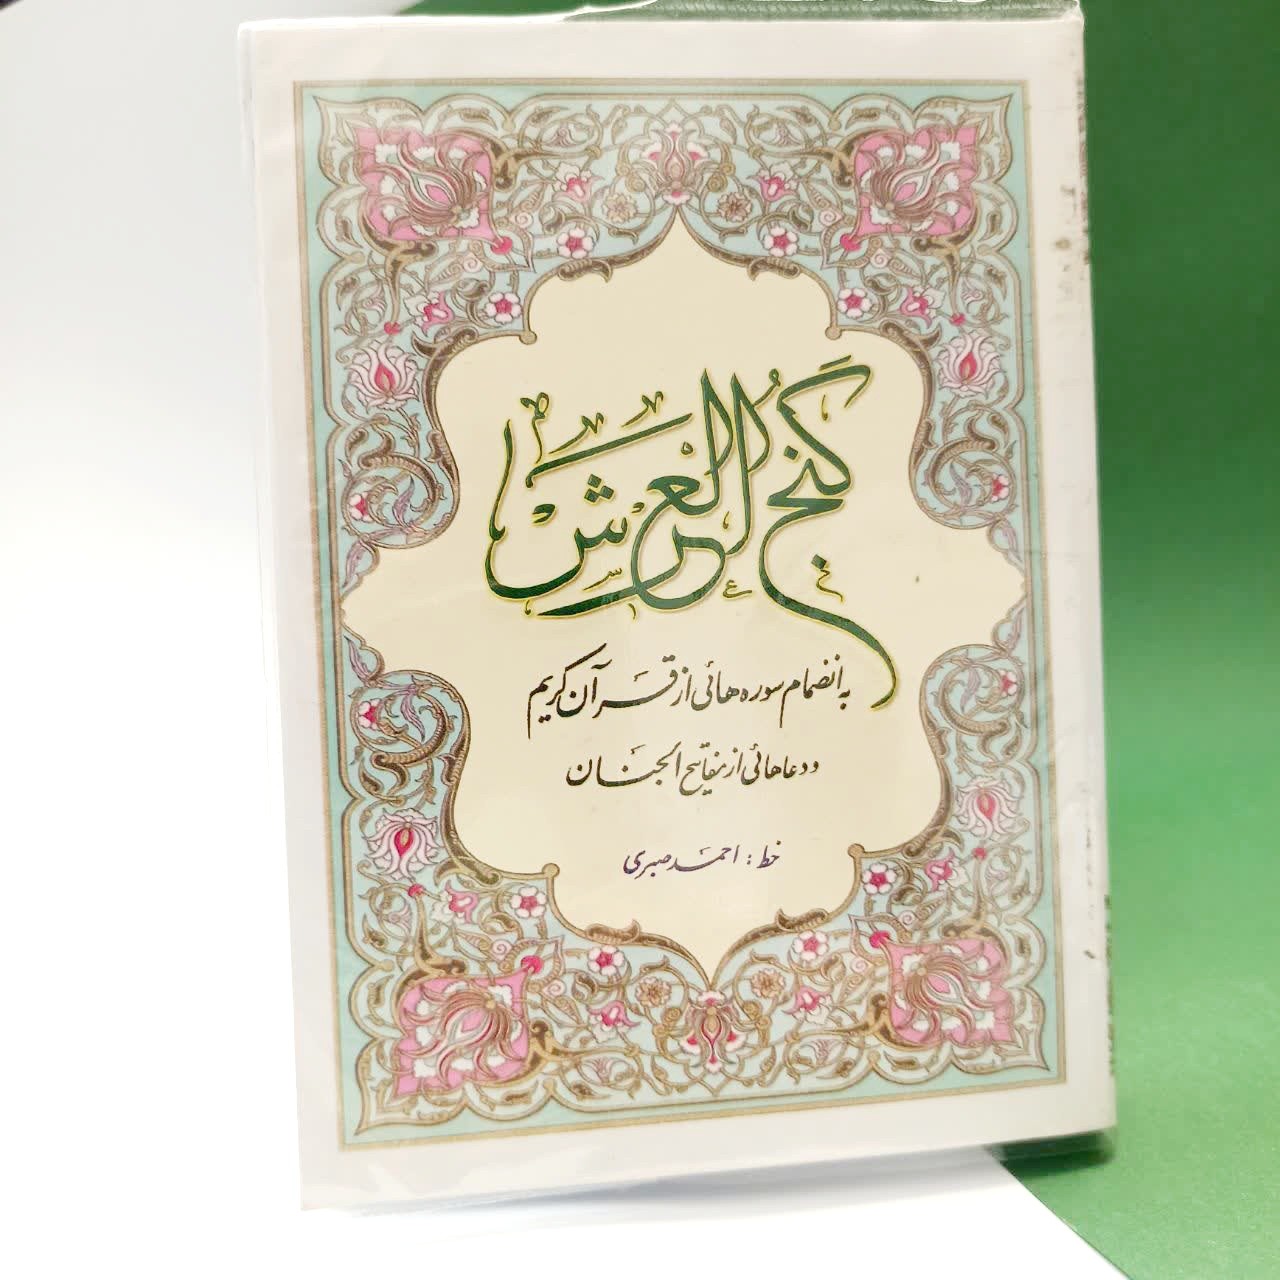 گنج العرش
به انضمام سوره‌هائی از قرآن کریم
و دعاهائی از مفاتیح الجنان
خط : احمد صبری